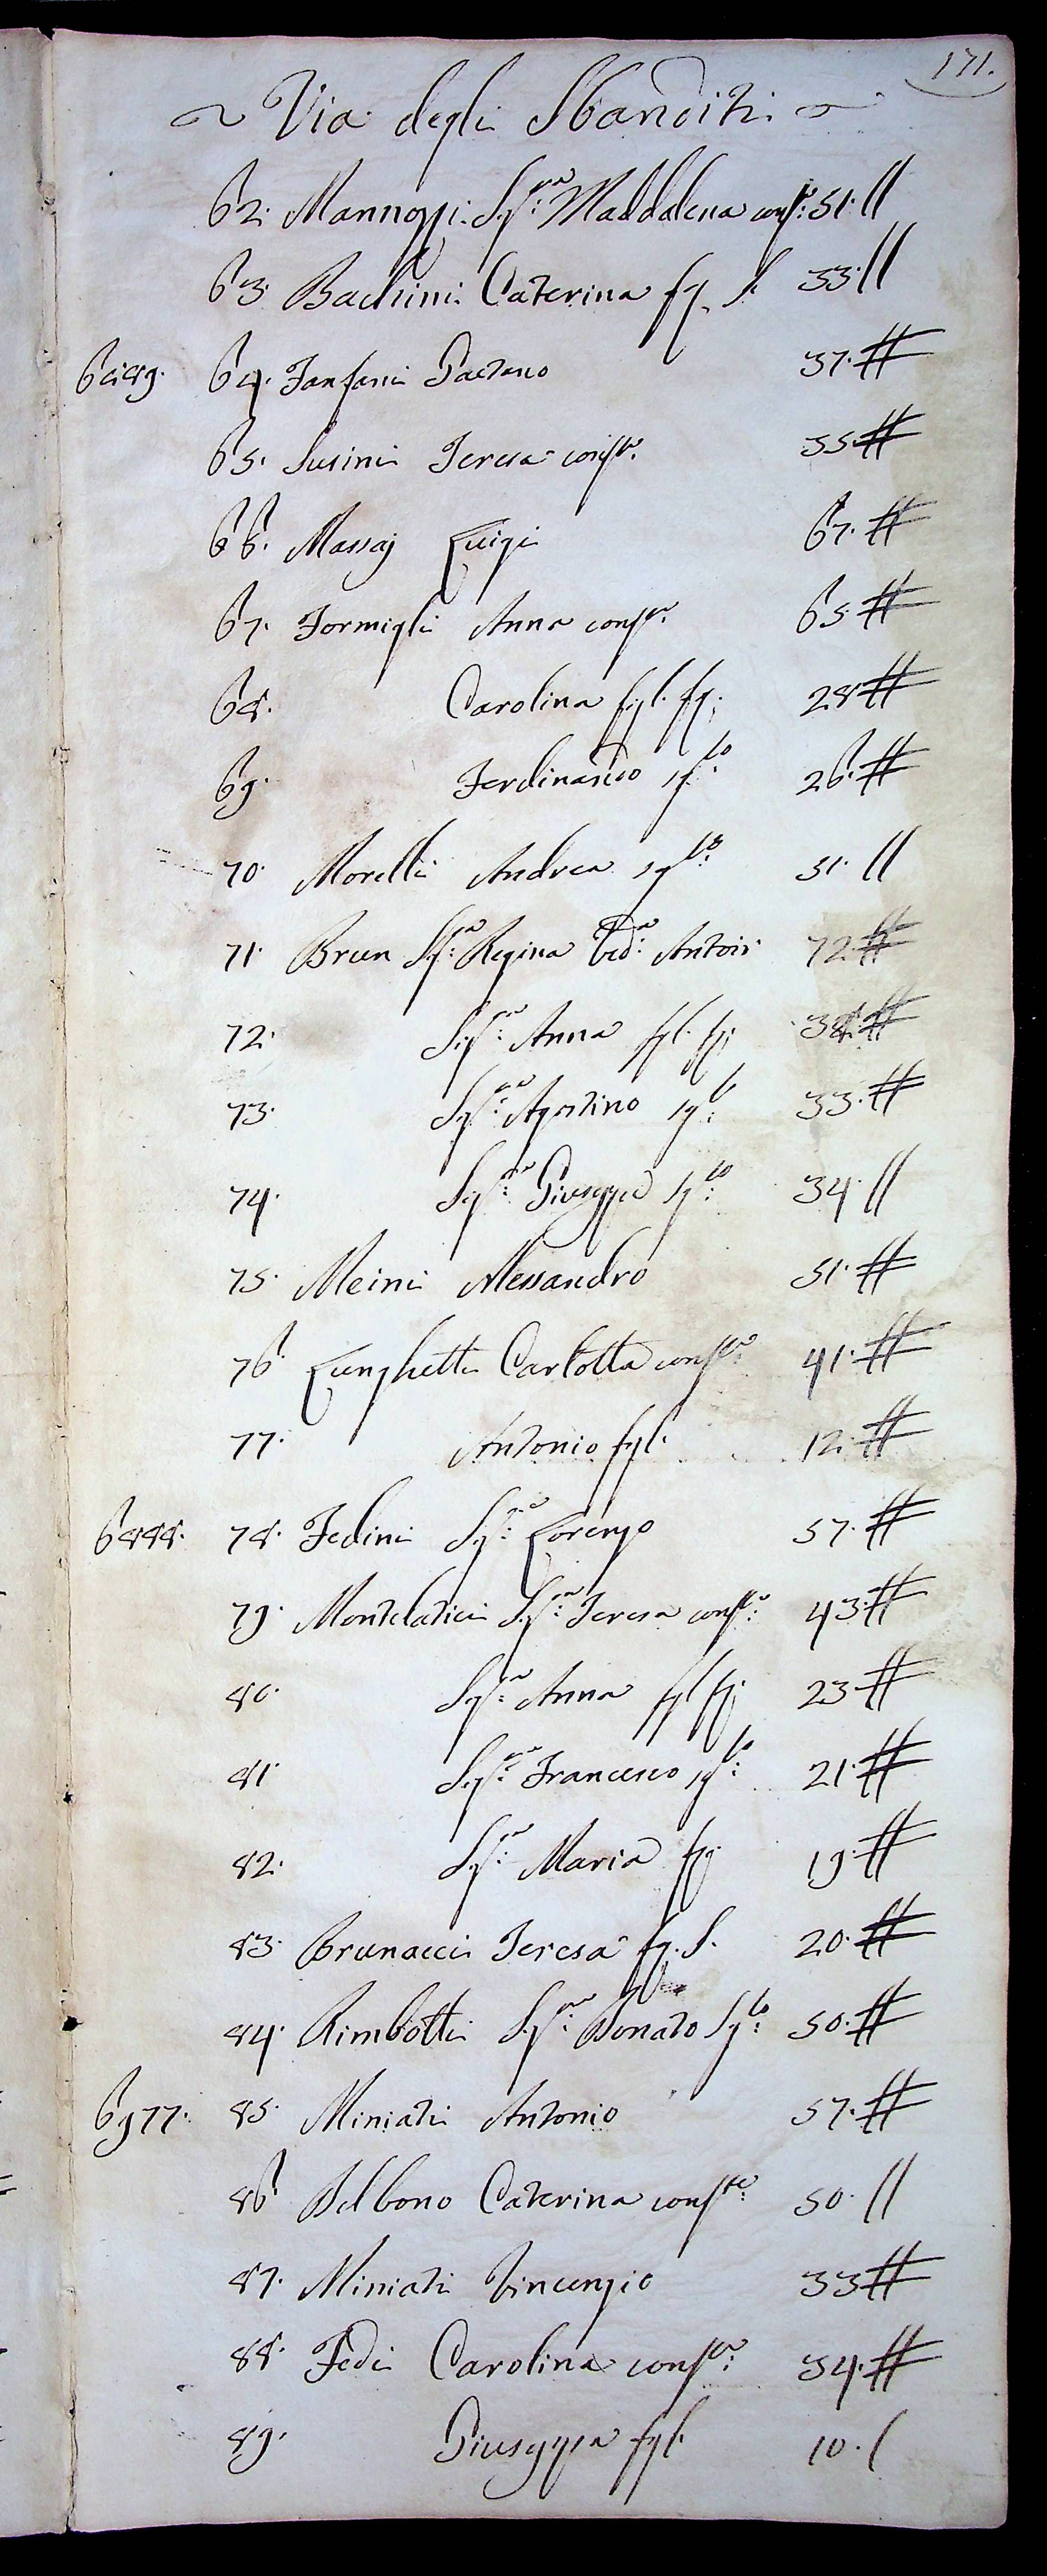 171.
~ Via degli Sbanditi ~
62. Mannozzi Sig.ra Maddalena cons.: 51. //
63. Bachini Caterina fg. S. 33. //
64. Fanfani Gaetano 37. #
65. Susini Teresa cons.te 35. #
66. Massaj Luigi 67. #
67. Formigli Anna cons.te 65. #
68. Carolina figl. fg. 28 #
69. Ferdinando sg.lo 26. #
70. Morelli Andrea sg.lo 51. //
71. Brun Sig.ra Regina Ved.a Antoir 72. #
72. Sig.ra Anna figl. fg. 38. #
73. Sig.re Agostino sg.lo 33. #
74. Sig.re Giuseppe sg.lo 34. //
75. Meini Alessandro 51. #
76. Lunghetti Carlotta cons.te 41. #
77. Antonio figl. 12. #
6888. 78. Fedini Sig.re Lorenzo 57. #
79. Montelatici Sig.ra Teresa cons.te 43. #
80. Sig.ra Anna figl. fg. 23. #
81. Sig.re Francesco sg.lo 21. #
82. Sig.ra Maria fg. 19. #
83. Brunacci Teresa fg. S. 20. #
84. Rimbotti Sig.re Donato Sg.lo 50. #
6977. 85. Miniati Antonio 57. #
86. Delbono Caterina cons.te 50. //
87. Miniati Vincenzio 33 #
88. Fedi Carolina cons.te 34. #
89. Giuseppa figl. 10. /